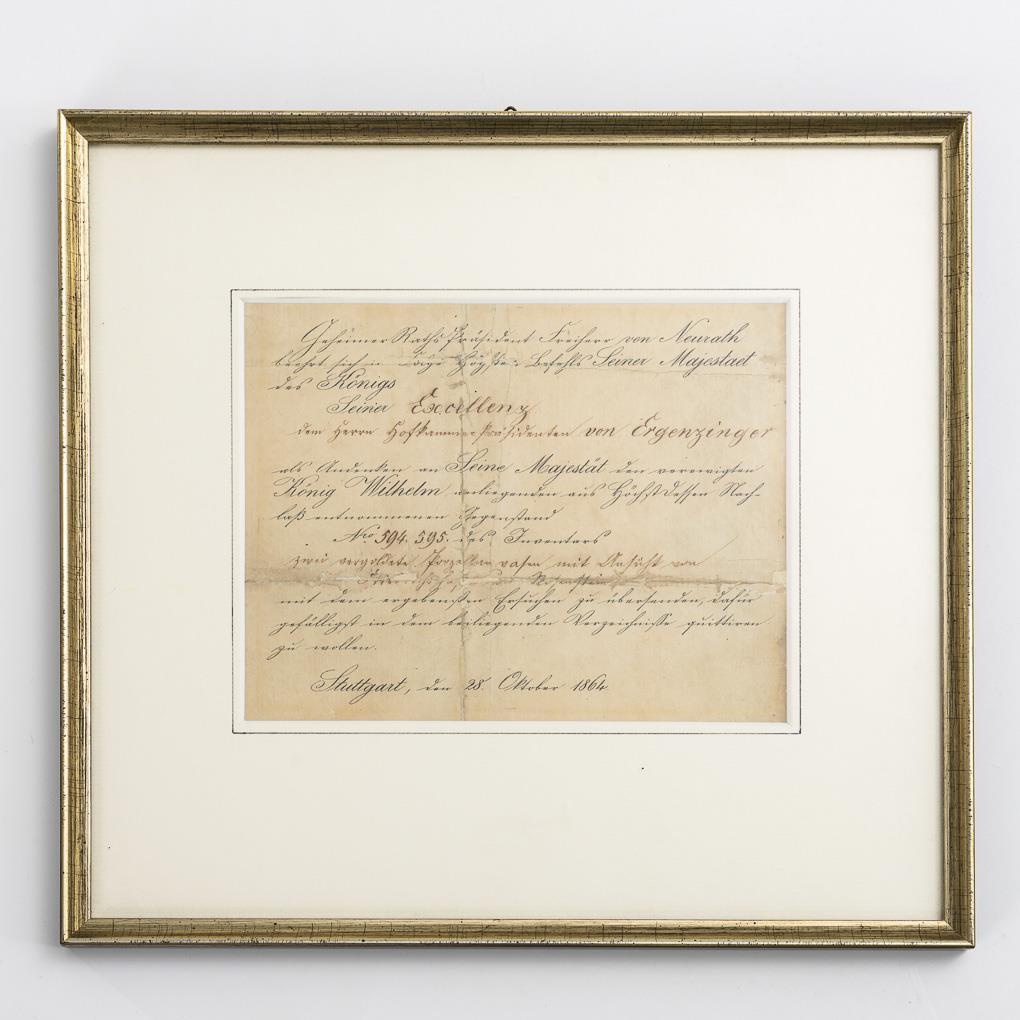 Geheimer Raths Präsident Freiherr von Neurath
beehrt sich in Höchsten Befehls Seiner Majestaet
des Königs
Seiner Excellenz
dem Herrn Hofkammer Präsidenten von Ergenzinger
als Andenken an Seine Majestät den verewigten
König Wilhelm anliegenden aus Höchstdessen Nach-
laß entnommenen Gegenstand
Nro 594. 595. des Inventars
zwei vergoldete Porzellan vasen mit Ansicht von
Rosenstein
mit dem ergebensten Ersuchen zu übersenden, dafür
gefälligst in dem beiliegenden Verzeichnisse quittiren
zu wollen.
Stuttgart, den 28. Oktober 1864